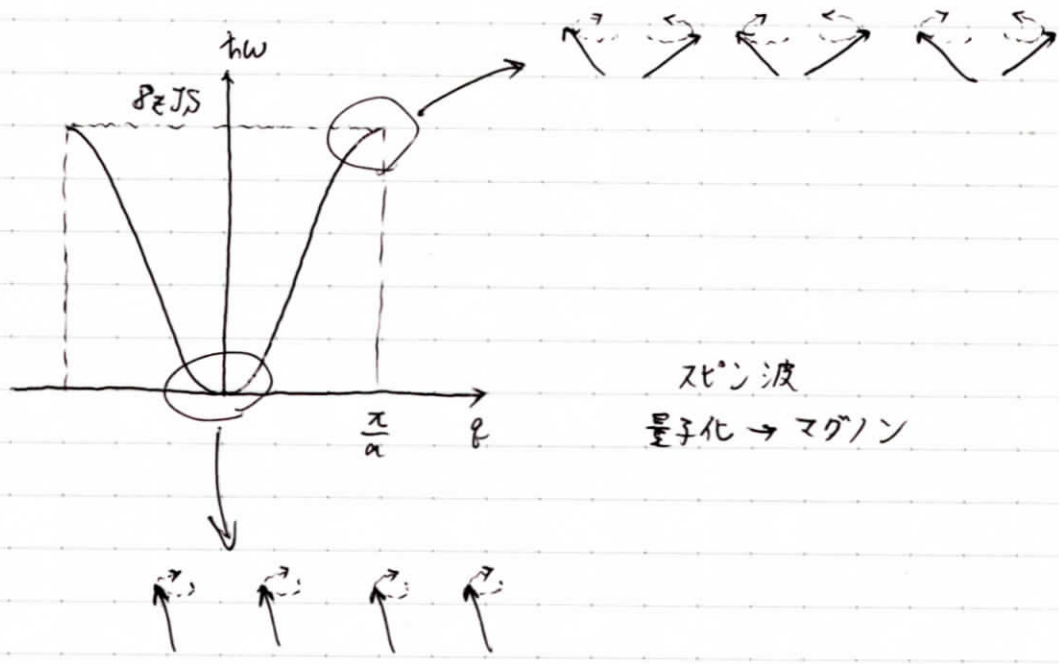 ħω
8zJS
π/a
q
スピン波
量子化 → マグノン